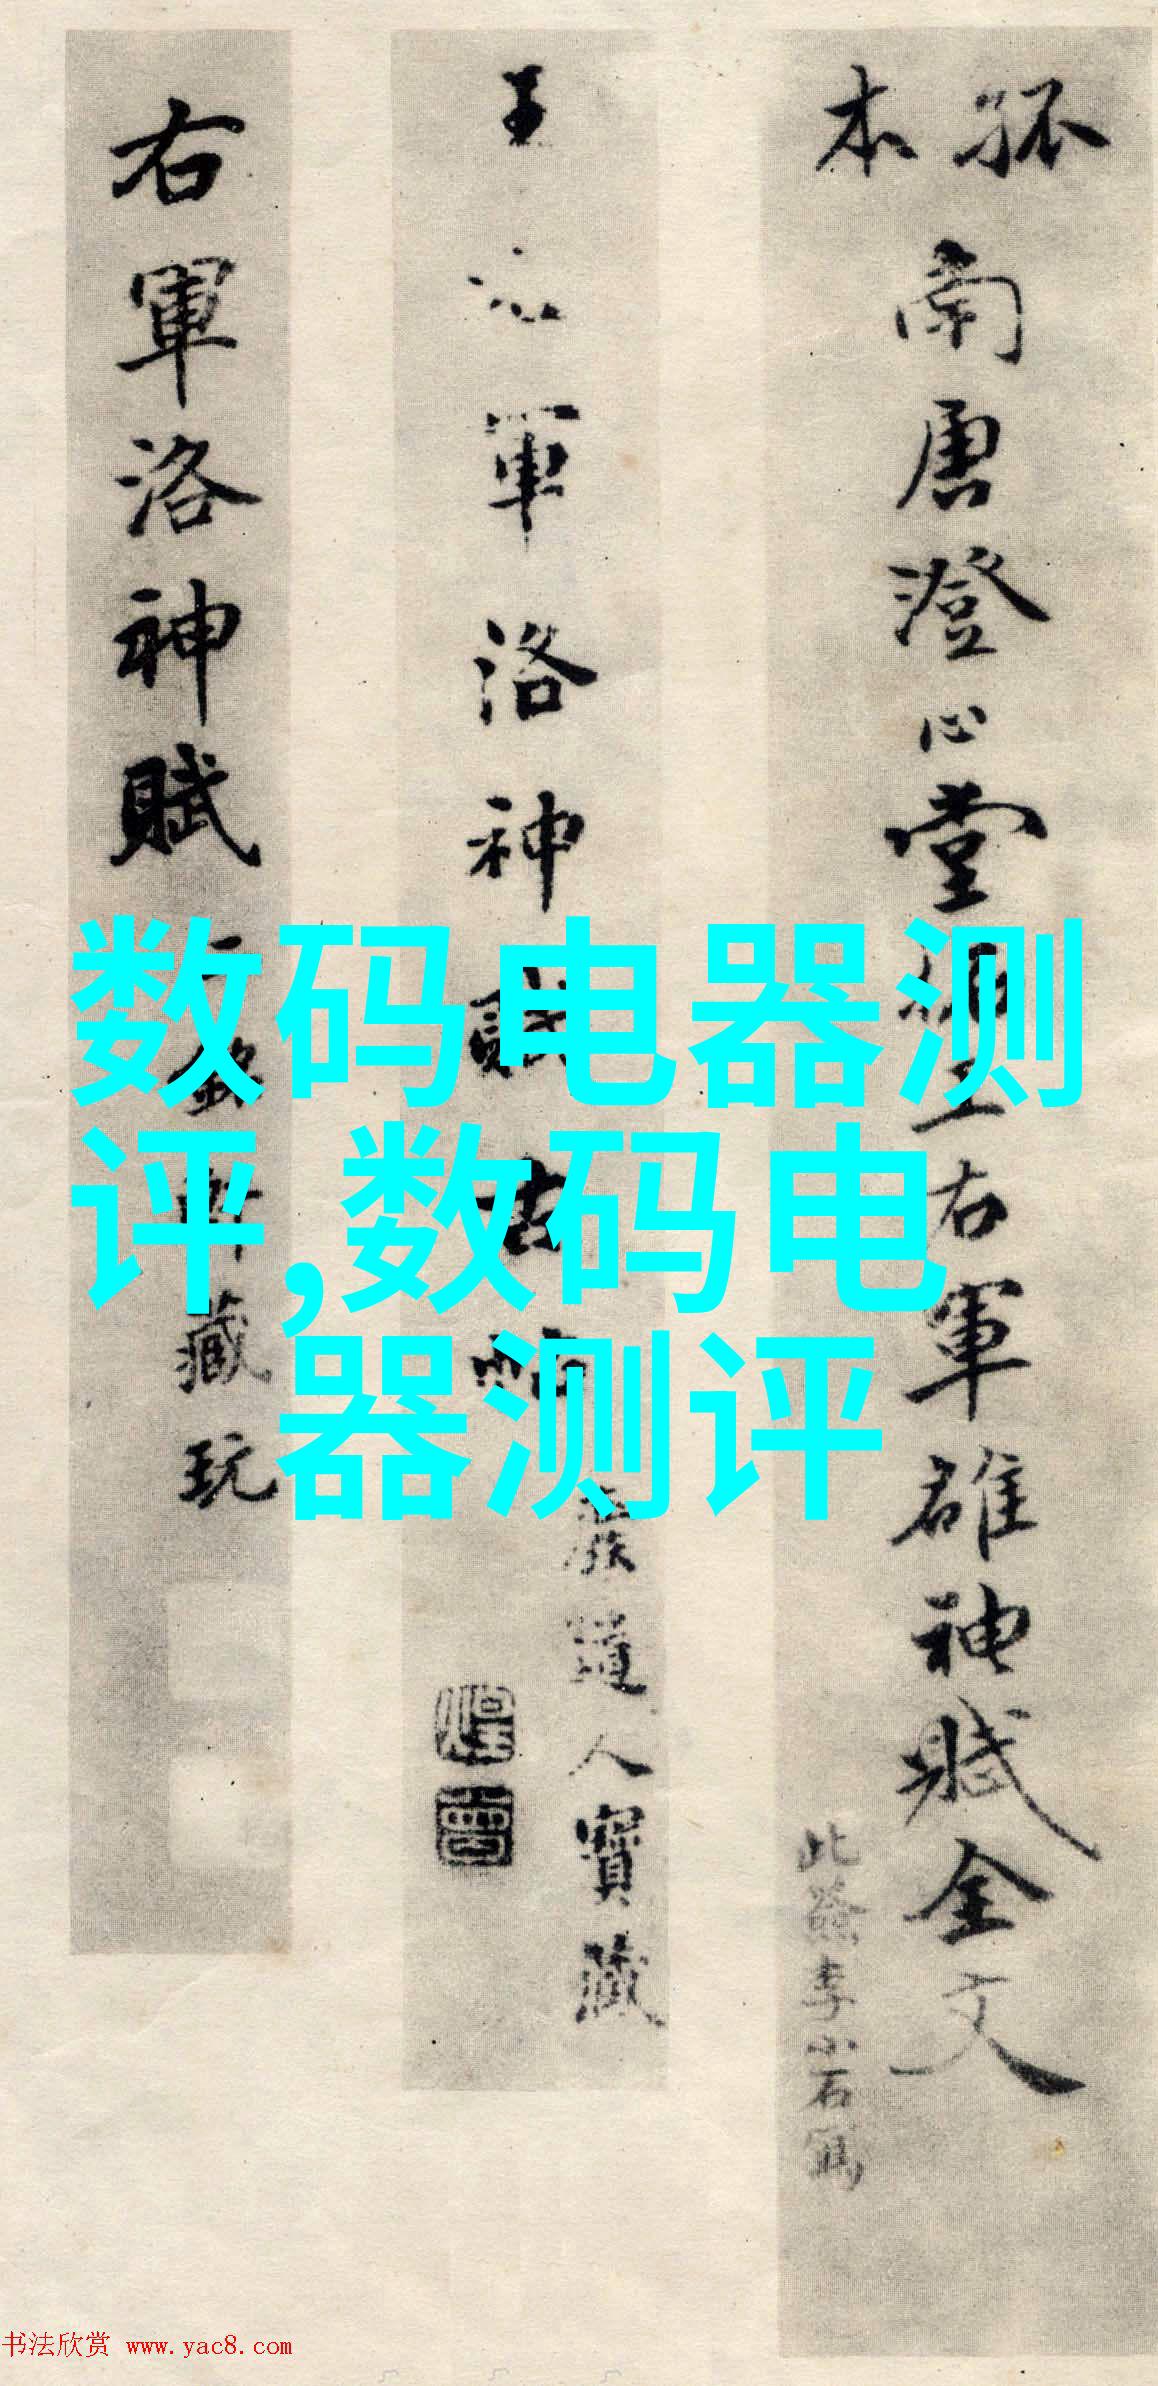 孤本
南唐澄心堂
王右軍雒神賦全文
此簽李小石寫
王
軍洛神賦
道人寶藏
右軍洛神賦
藏玩
数码电器测
评,数码电
器测评
书法欣赏 www.yac8.com